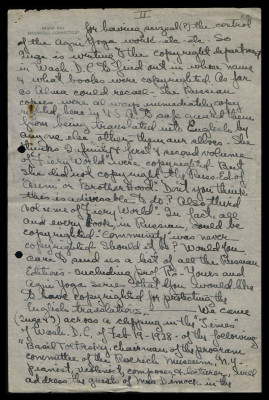 II
for having seized (?) the control
of the Agni Yoga work etc. etc. So
Inge is writing to the copyright department
in Wash. D.C. to find out in whose name
& what books were copyrighted. As far
as Alma could recall - the Russian
copies were always immediately copy
righted here in U.S.A. to safe guard them
from being translated into English by
anyone else other than our allows. She
thinks Infinity & first & second volume
of "Fiery World" were copyrighted. But
she did not copyright the Russ. Ed. of
Aum or Brotherhood. Don't you think
this is advisable to do? Also third
volume of Fiery World". In fact, all
and every book, in Russian, could be
copyrighted. "Community" was never
copyrighted. Should it be? Would you
care to send us a list of all the Russian
Editions - including Prof. R's, Yours and
Agni Yoga series that you would like
to have copyrighted for protecting the
English translations. We came
(Inge & I) across a clipping in the "Times"
of Wash. D.C. of Feb-19-1938 - of the following
"Basil Pototsky, chairman of the program
committee of the Roerich Museum, N.Y.
pianist, violinist, composer, & lecturer, will
address the guest of Mrs Demock in the